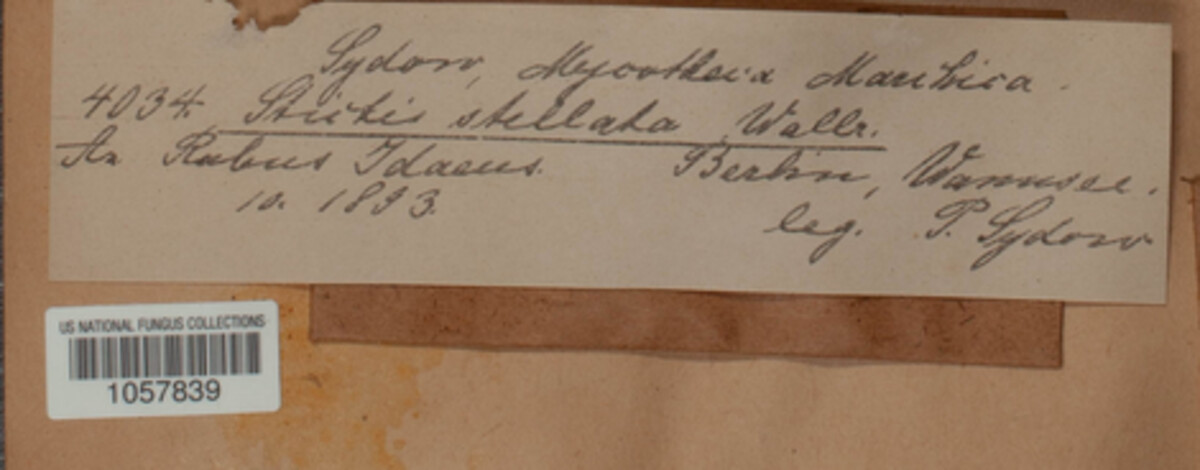 Sydow, Mycotheca Marchica.
4034. Stictis stellata Wallr.
An Rubus Idaeus. Berlin, Wannsee.
10. 1893. leg. P. Sydow
US NATIONAL FUNGUS COLLECTIONS
1057839